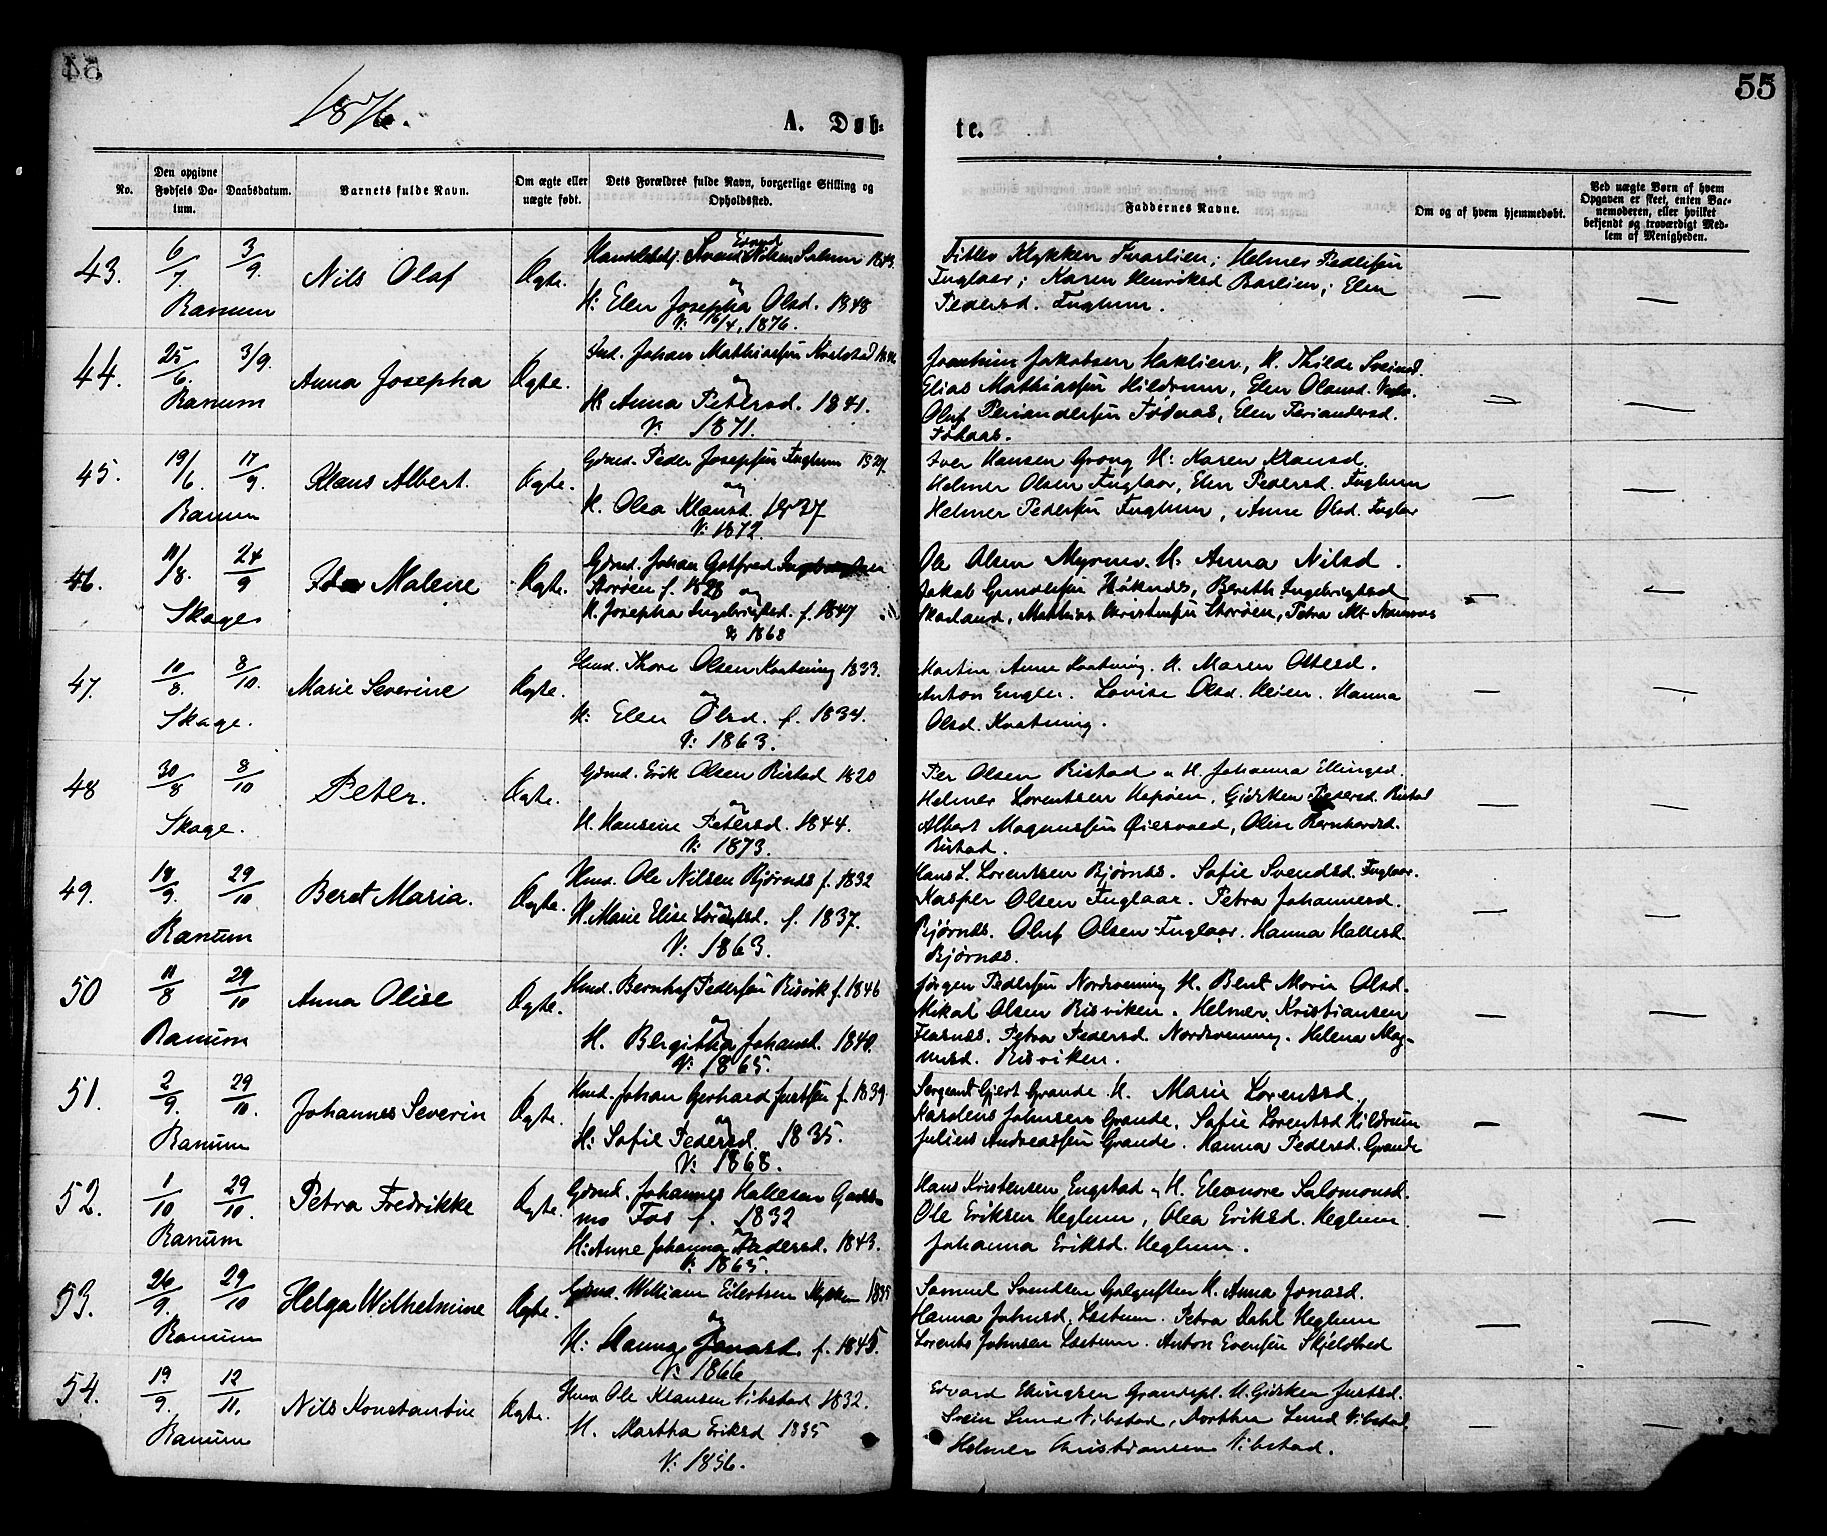 54
55
1876.
A. Døb-
te.
No.
Den opgivne Fødsels Da- tum.
Daabsdatum.
Barnets fulde Navn.
Om ægte eller uægte født.
Dets Forældres fulde Navn, borgerlige Stilling og Opholdssted.
Faddernes Navne.
Om og af hvem hjemmedøbt.
Ved uægte Børn af hvem Opgaven er skeet, enten Bar- nemoderen, eller hvilket bekjendt og troværdigt Med- lem af Menigheden.
43.
6/7
3/9.
Ranum
Nils Olaf
Ægte.
H: Elen Josepha Olsd. 1848
V: 16/4, 1876.
Helmer Pedersen
Fuglaar; Karen Henriksd Barlien; Elen
Pedersd. Fuglum.
44.
25/6.
3/9.
Ranum
Anna Josepha
Ægte.
Johan Mathiassen
og
H: Anna Petersd. 1841.
V. 1871.
Joachim Jakobsen Haklien,
Elias Mathiassen Hildrum, Elen
Oluf Periandersen Fosnaas, Elen Periandersd.
45.
19/6.
17/9.
Ranum
Klaus Albert.
Ægte.
Gdmd. Peder Josephsen Fuglum 1827.
og
H. Olea Klausd. 1837
V: 1872.
Iver Hansen Grong H: Karen Klausd.
Helmer Olsen Fuglaar, Elen Pedersd. Fuglum
Helmer Pedersen Fuglum, Anne Olsd. Fuglaar
46.
11/8.
24/9
Skage
Malene
Ægte.
Gdmd. Johan Gotfred
Storøen f. 1828 og
H. Josepha Ingebrigtsd. f. 1847
V 1868
Ole Olsen Myrmo. H. Anna Nilsd.
Jakob Gundersen Berith Ingebrigtsd
Mathias Christensen Storøen, Petra
47.
10/8.
8/10.
Skage.
Marie Severine
Ægte.
Hmd. Thore Olsen Kvatning 1833.
og
H: Elen Olsd. f. 1834.
V: 1863.
Martin Arne Kvatning. H. Maren Ottesd.
Anton Engler. Lovise Olsd. Heien. Hanna
Olsd. Kvatning.
48
30/8
8/10
Skage.
Peter.
Ægte.
Gdmd. Erik Olsen Ristad 1820
og
H. Hansine Petersd. 1844.
V: 1873.
Per Olsen Ristad H. Johanna Ellingsd.
Helmer Lorentsen Gidsken Pedersd. Ristad
Albert Magnussen Øiesvold, Olise Bernhardsd.
Ristad.
49.
18/9.
29/10
Ranum
Beret Maria.
Ægte.
Hmd. Ole Nilsen Bjørnes f. 1832
og
H. Marie Elise Lorentsd. f. 1837.
V: 1863.
Hans L. Lorentsen Bjørnes. Sofie Svendsd. Fuglaar.
Kasper Olsen Fuglaar. Petra Johannesd.
Bjørnes. Oluf Olsen Fuglaar. Hanna Hallesd.
Bjørnes.
50
11/8
29/10
Ranum
Anna Olise
Ægte.
Hmd. Bernhof Pedersen Risvik f. 1846
og
H. Bergitha Johansd. 1840.
V: 1865.
Jørgen Pedersen Nordrevening H. Beret Marie Olsd.
Mikal Olsen Risviken. Helmer Kristiansen
Petra Pedersd. Nordrevening. Helena Mag-
nusd. Risviken.
51.
2/9.
29/10.
Ranum
Johannes Severin
Ægte.
Hmd. Johan Gerhard Justsen f. 1839
og
H: Sofie Pedersd. 1835.
V: 1868.
Sergeant Gjert Grande H. Marie Lorentsd.
Karolens Johnsen Grande. Sofie Lorentsd Hildrum
Julius Andreassen Grande. Hanna Pedersd. Grande
52.
1/10
29/10.
Ranum
Petra Fredrikke
Ægte.
Gdmd. Johannes Hallesen Gart-
mo Fos f. 1832
H: Anne Johanna Pedersd. 1843.
V: 1865.
Hans Kristensen Engstad H. Eleonore Salomonsd.
Ole Eriksen Heglum, Olea Eriksd. Heglum.
Johanna Eriksd. Heglum.
53.
26/9.
29/10
Ranum
Helga Wilhelmine
Ægte.
Gdmd. William Eilertsen Mykken 1835
og
H: Hanna Jonasd. f. 1845.
V: 1866
Samuel Svendsen Galguften H. Anna Jonasd.
Hanna Johnsd. Lætum. Petra Dahl Heglum
Lorents Johnsen Lætum. Anton Evensen Skjeldbred
54.
19/9.
12/11.
Ranum
Nils Konstantin
Ægte.
Hmd Ole Klausen Vibstad 1832.
H. Martha Eriksd 1835
V: 1856.
Edvard Ellingsen Grandepl. H. Gidsken Justsd.
Svein Lund Vibstad, Dorthea Lund Vibstad,
Helmer Christiansen Vibstad.